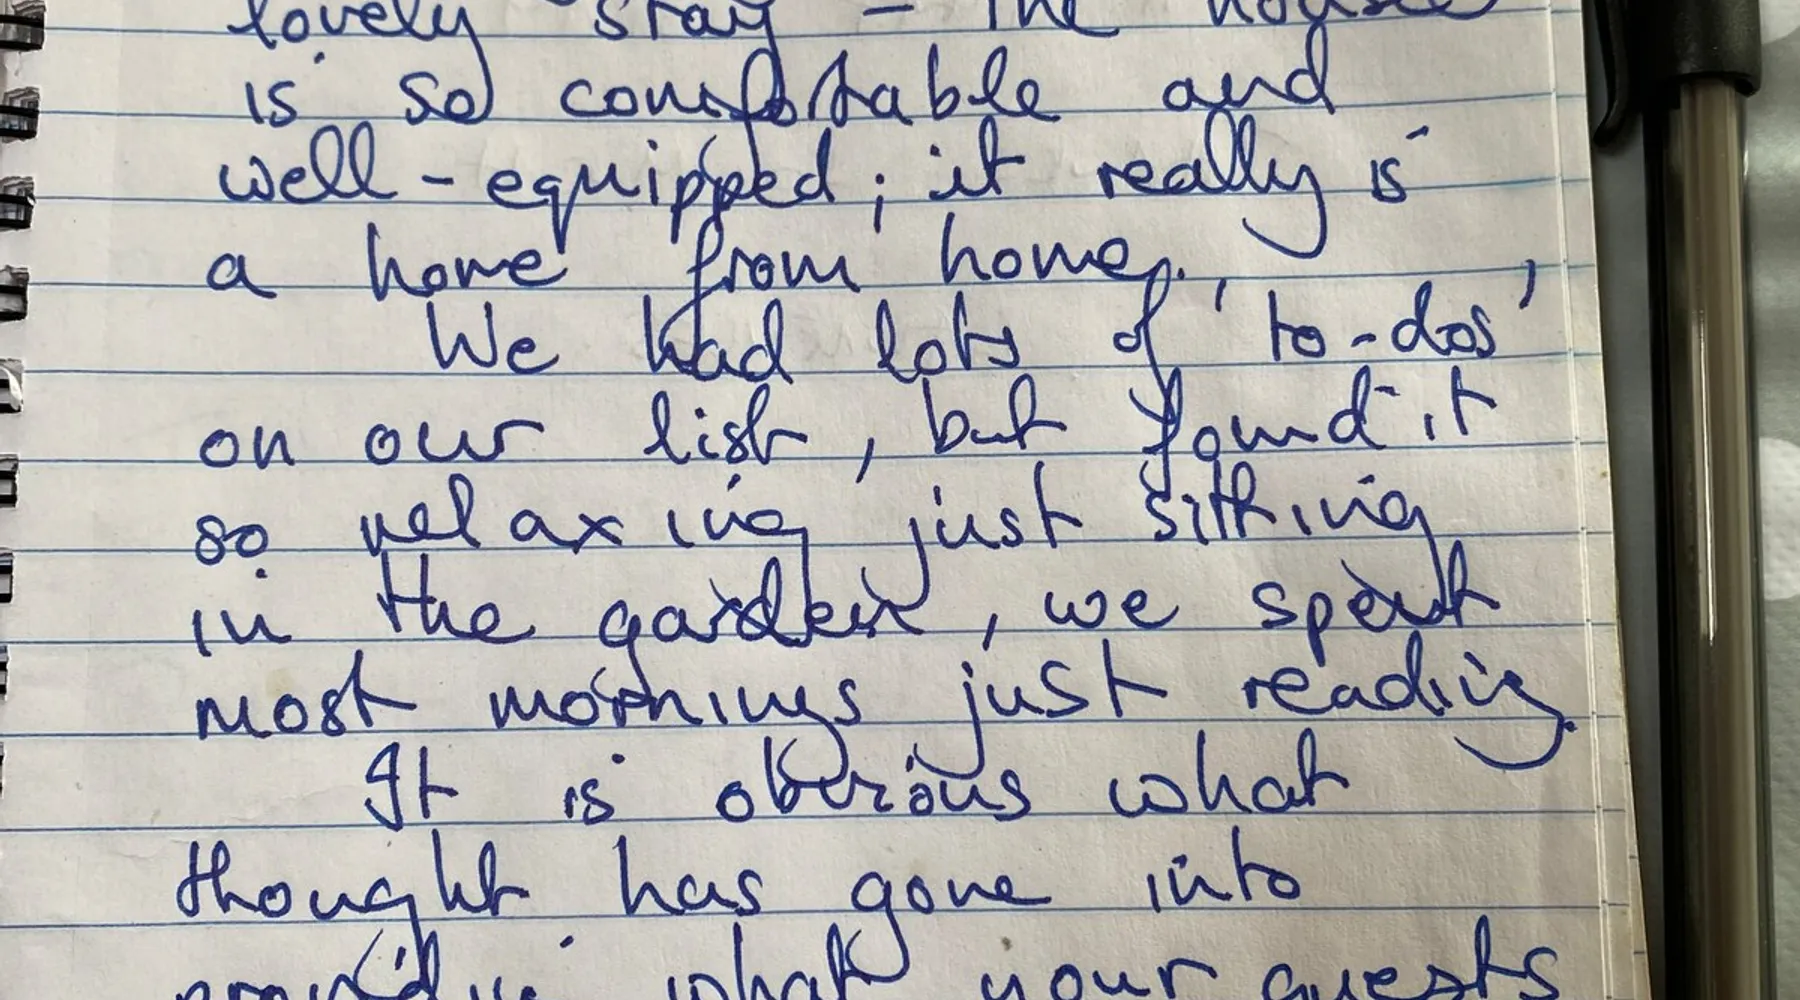 lovely stay - the house
is so comfortable and
well-equipped; it really is
a home from home.
We had lots of 'to-dos'
on our list, but found it
so relaxing just sitting
in the garden, we spent
most mornings just reading.
It is obvious what
thought has gone into
providing what your guests